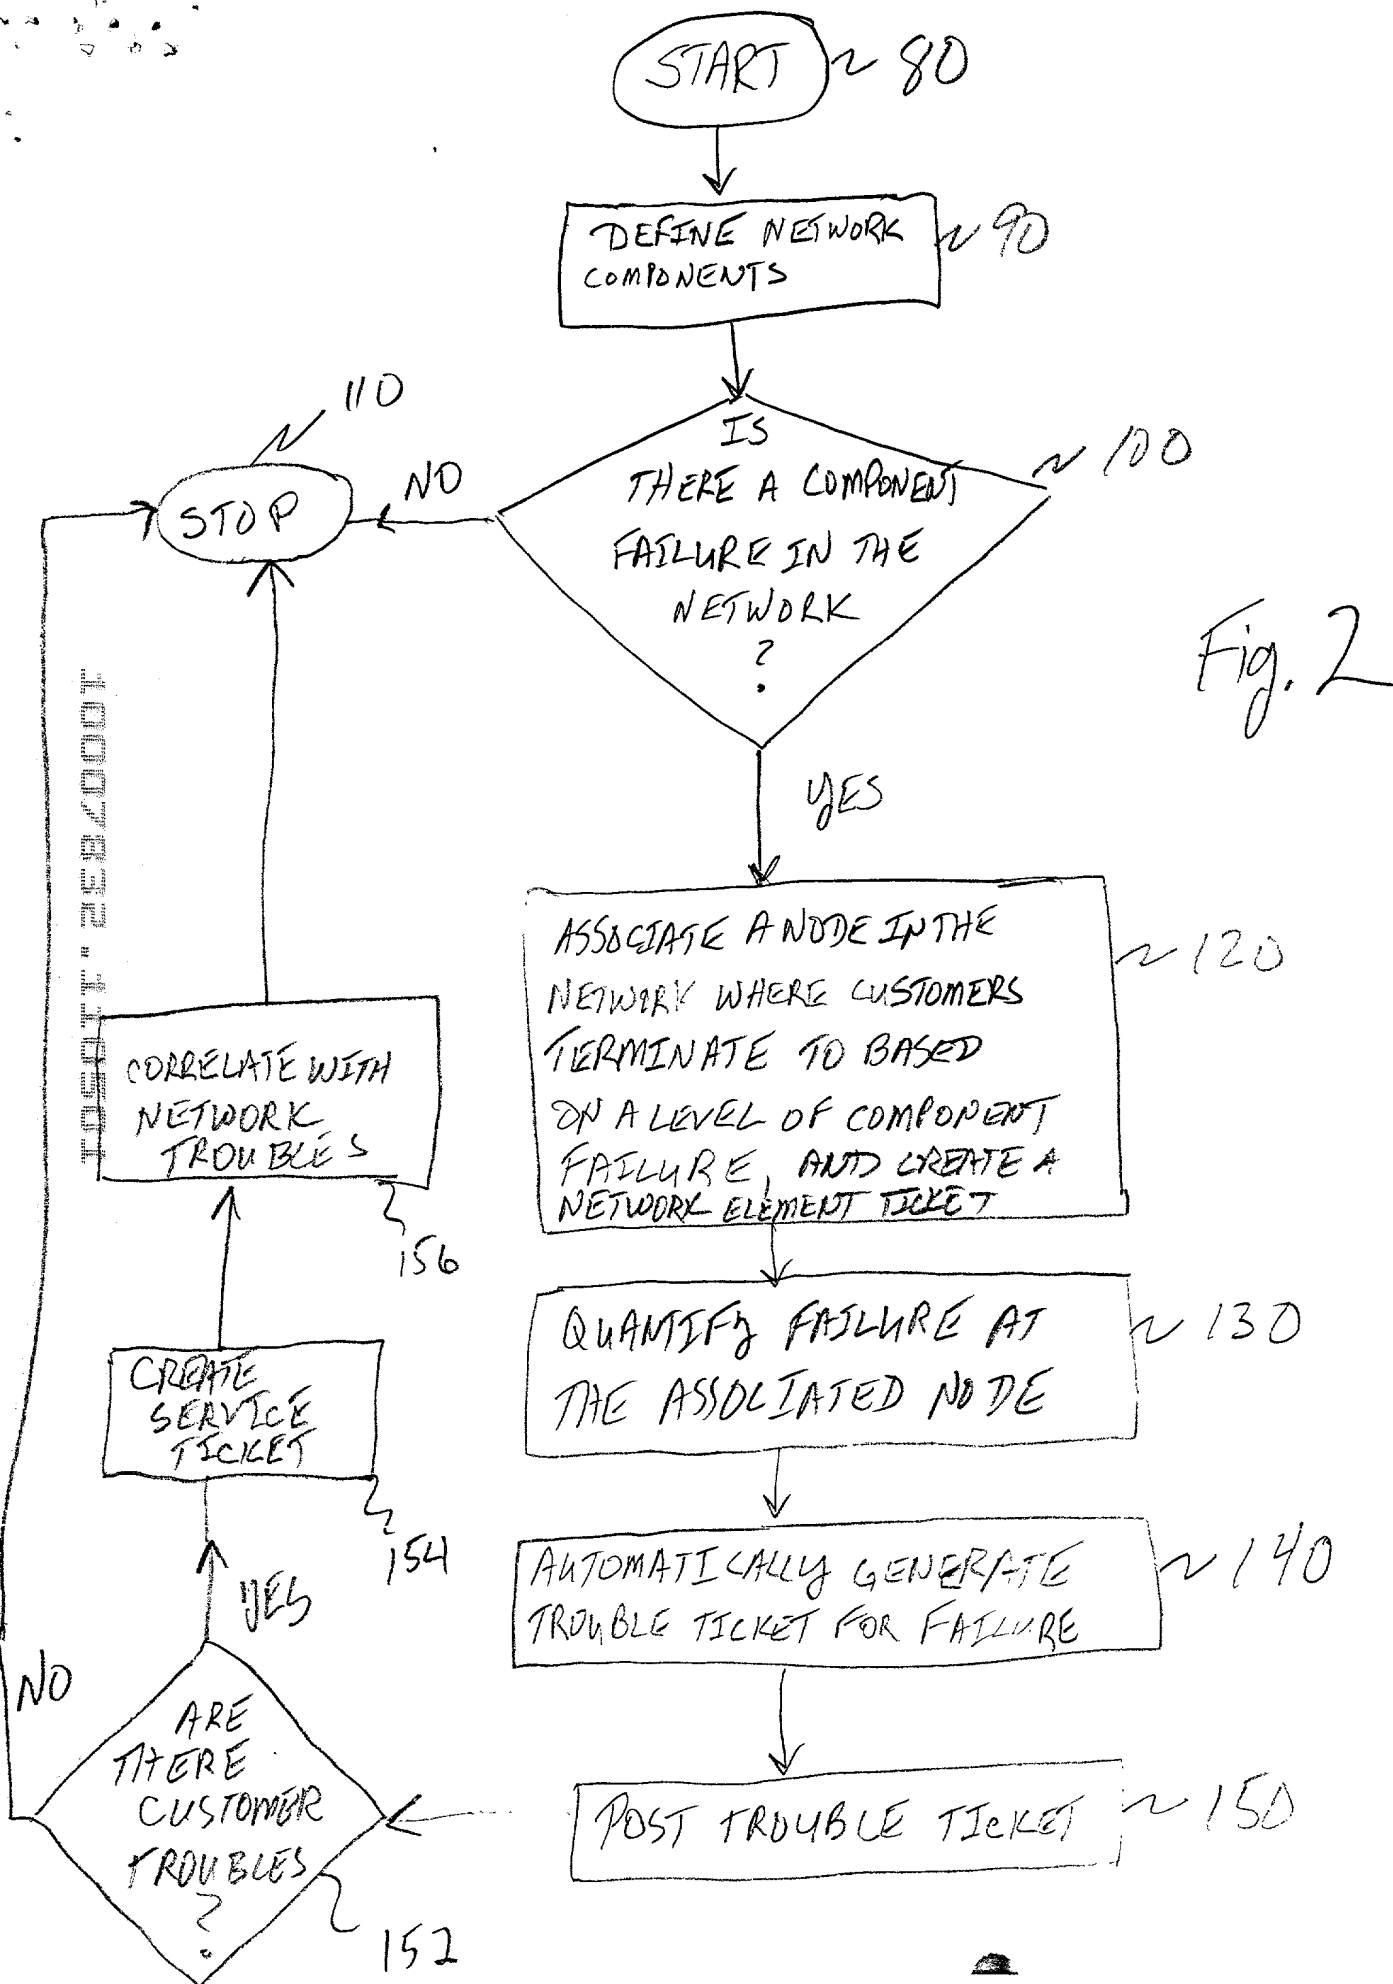 START 80
DEFINE NETWORK
COMPONENTS
90
110
STOP
NO
IS
THERE A COMPONENT
FAILURE IN THE
NETWORK
?
100
Fig. 2
YES
ASSOCIATE A NODE IN THE
NETWORK WHERE CUSTOMERS
TERMINATE TO BASED
ON A LEVEL OF COMPONENT
FAILURE, AND CREATE A
NETWORK ELEMENT TICKET
120
QUANTIFY FAILURE AT
THE ASSOCIATED NODE
130
AUTOMATICALLY GENERATE
TROUBLE TICKET FOR FAILURE
140
POST TROUBLE TICKET
150
ARE
THERE
CUSTOMER
TROUBLES
?
152
NO
YES
CREATE
SERVICE
TICKET
154
CORRELATE WITH
NETWORK
TROUBLES
156
10007832.110501